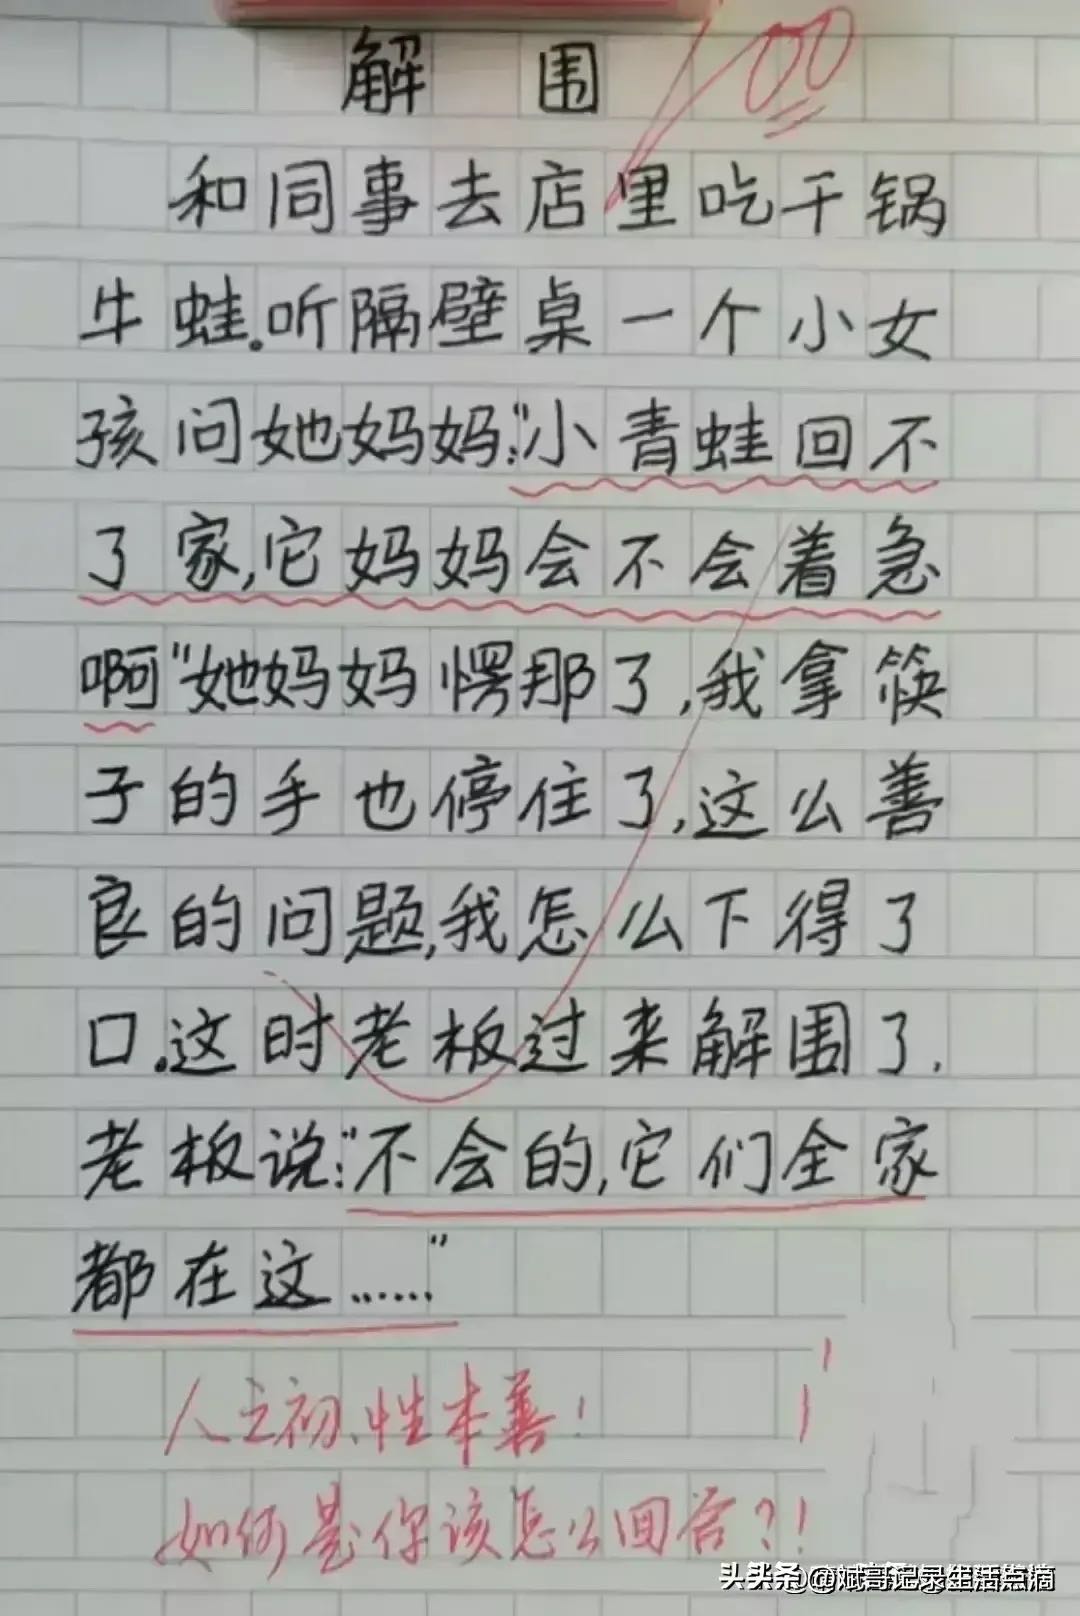 解围
100
和同事去店里吃干锅
牛蛙。听隔壁桌一个小女
孩问她妈妈:"小青蛙回不
了家,它妈妈会不会着急
啊"她妈妈愣那了,我拿筷
子的手也停住了,这么善
良的问题,我怎么下得了
口。这时老板过来解围了.
老板说:"不会的,它们全家
都在这……"
人之初、性本善!
如何是你该怎么回答?!
头条 @斌哥记录生活点滴